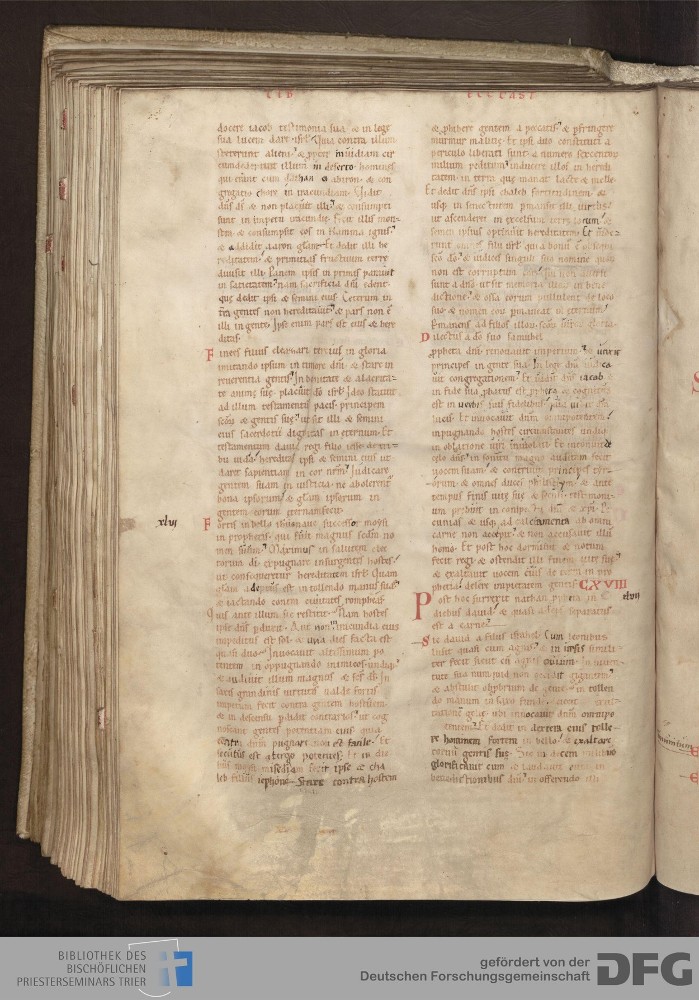 LIB
ECCLASI
docere iacob testimonia sua & in lege
sua lucem dare isrl. Quia contra illum
steterunt alieni & ppter inuidiam cir
cumdederunt illum in deserto homines
qui erant cum dathan & abiron & con
gregatio chore in iracundiam. Vidit
dns ds & non placuit illi & consumpti
sunt in impetu iracundie. Fecit illis mon
stra & consumpsit eos in flamma ignis
& addidit aaron glam & dedit illi he
reditatem & primicias fructuum terre
diuisit illi. Panem ipsis in primis parauit
in sacietatem nam sacrificia dni edent
que dedit ipsi & semini eius. Ceterum in
tra gentes non hereditauit & pars non e
illi in gente. Ipse enim pars est eius & here
ditas.
Finees filius eleazari tercius in gloria
imitando ipsum in timore dni & stare in
reuerentia gentis. In bonitate & alacrita
te anime sue placuit do isrl. Ideo statuit
ad illum testamentum pacis principem
scorum & gentis sue ut sit illi & semini
eius sacerdotii dignitas in eternum. Et
testamentum dauid regi filio iesse de tri
bu iuda hereditas ipsi & semini eius ut
daret sapientiam in cor nrm. Iudicare
gentem suam in iusticia ne abolerent
bona ipsorum & glam ipsorum in
gentem eorum eternam fecit
xlvi
Fortis in bello ihs naue successor moysi
in prophetis qui fuit magnus scdm no
men suum. Maximus in salutem elec
torum di expugnare insurgentes hostes
ut consequeretur hereditatem isrl. Quam
glam adeptus est in tollendo manus suas
& iactando contra ciuitates rompheas.
Quis ante illum sic restitit. Nam hostes
ipse dns pduxit. Aut non in iracundia eius
impeditus est sol & una dies facta est
quasi duo. Inuocauit altissimum po
tentem in oppugnando inimicos undiq
& audiuit illum magnus & scs ds. In
saxis grandinis uirtutis ualde fortis
impetum fecit contra gentem hostilem
& in descensu pdidit contrarios ut cog
noscant gentes potentiam eius quia
contra dnm pugnare non est facile. Et
secutus est a tergo potentis. Et in die
bus moysi misediam fecit ipse & cha
leb filius iephone. Stare contra hostem
& phibere gentem a peccatis & pfringere
murmur malicie. Et ipsi duo constituti a
periculo liberati sunt a numero sexcentorum
milium peditum inducere illos in heredi
tatem in terra que manat lac & melle.
Et dedit dns ipsi chaleb fortitudinem &
usq in senectutem pmansit illi uirtus
ut ascenderet in excelsum terre locum &
semen ipsius optinuit hereditatem. Ut uide
rent omnes filii isrl quia bonum e obsequi
sco do. & iudices singuli suo nomine quorum
non est corruptum cor. Qui non auersi
sunt a dno ut sit memoria illorum in bene
dictione & ossa eorum pullulent de loco
suo & nomen eorum pmaneat in eternum
Pmanens ad filios illorum scorum uirorum gloria.
Dilectus a do suo samuhel
ppheta dni renouauit imperium & unxit
principes in gente sua. In lege dni iudica
uit congregationem & uidit ds iacob &
in fide sua pbatus est ppheta & cognitus
est in uerbis suis fidelibus quia uidit dm
lucis. Et inuocauit dnm omnipotentem
in oppugnando hostes circumstantes undiq
in oblatione uiri inuiolati. Et intonuit de
celo dns in sonitu magno auditam fecit
uocem suam & contriuit principes tyri
orum & omnes duces philistiim & ante
tempus finis uite sue & seculi testimoni
um prebuit in conspectu dni & xpi. Pe
cunias & usq ad calciamenta ab omni
carne non accepit & non accusauit illum
homo. Et post hoc dormiuit & notum
fecit regi & ostendit illi finem uite sue
& exaltauit uocem eius de terra in pro
phetia delere impietatem gentis. CXVIII
xlvii
Post hoc surrexit nathan ppheta in
diebus dauid & quasi adeps separatus
est a carne
Sic dauid a filiis israhel. Cum leonibus
lusit quasi cum agnis & in ursis simili
ter fecit sicut in agnis ouium. In iuuen
tute sua numquid non occidit gigantem
& abstulit obprobrium de gente. In tollen
do manum in saxo funde deiecit exul
tationem golie. Nam inuocauit dnm omnipo
tentem. Et dedit in dextera eius tolle
re hominem fortem in bello & exaltare
cornu gentis sue. Sic in decem milibus
glorificauit eum & laudauit eum in
benedictionibus dni in offerendo illi
BIBLIOTHEK DES
BISCHÖFLICHEN
PRIESTERSEMINARS TRIER
gefördert von der
Deutschen Forschungsgemeinschaft
DFG